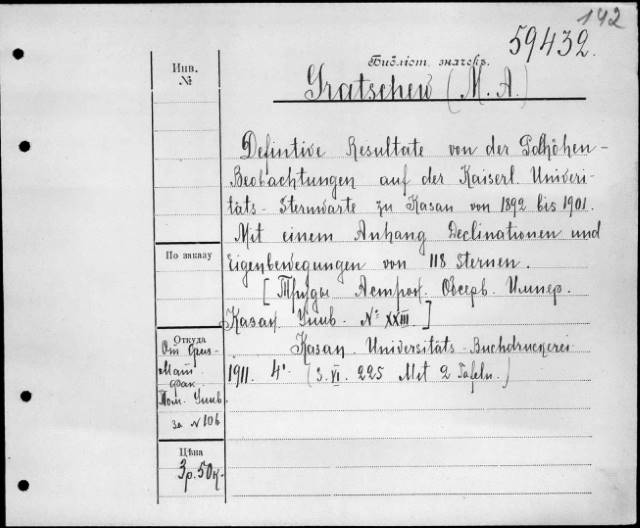 142
59432.
Библіот. значекъ.
Gratschew (M. A.)
Инв.
№
Defintive Resultate von der Polhöhen-
Beobachtungen auf der Kaiserl. Univeri-
täts-Sternwarte zu Kasan von 1892 bis 1901.
Mit einem Anhang Declinationen und
По заказу
Eigenbewegungen von 118 Sternen.
[Труды Астрон. Обсерв. Импер.
Казан. Унив. № XXIII.]
Откуда
От Физ-
Мат.
фак.
Том. Унив.
за № 106
Kasan. Universitäts-Buchdruckerei
1911. 4º. (3. VI. 225 Met 2 Tafeln.)
Цѣна
3 р. 50 к.